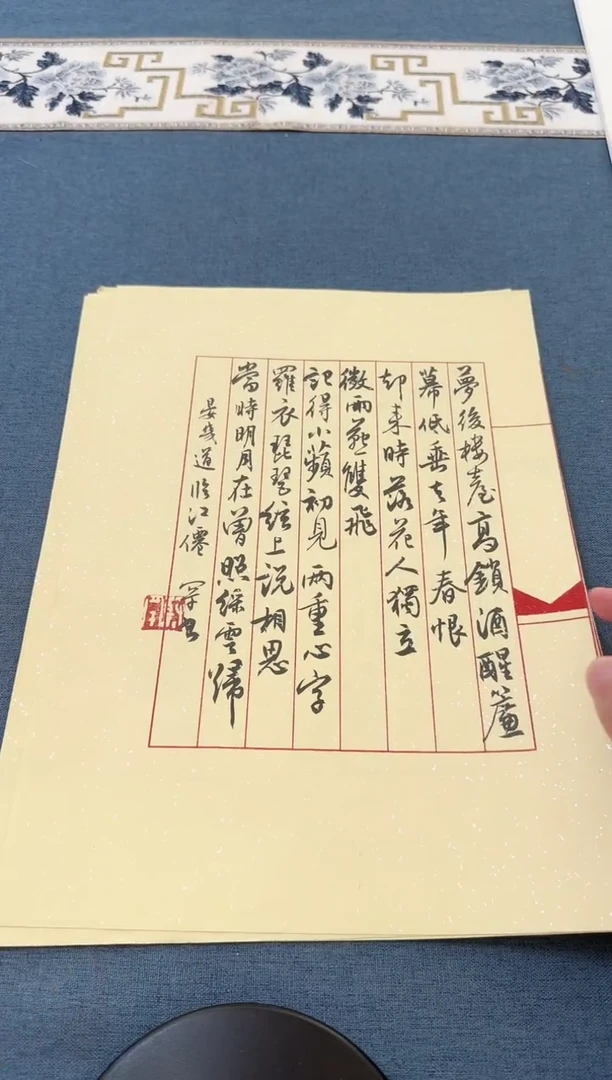 夢後樓臺高鎖酒醒簾
幕低垂去年春恨
却来時落花人獨立
微雨燕雙飛
記得小蘋初見兩重心字
羅衣琵琶絃上说相思
當時明月在曾照綵雲歸
晏幾道臨江僊
書